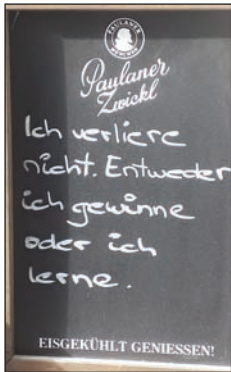 PAULANER
MÜNCHEN
Paulaner
Zwickl
Ich verliere
nicht. Entweder
ich gewinne
oder ich
lerne.
EISGEKÜHLT GENIESSEN!